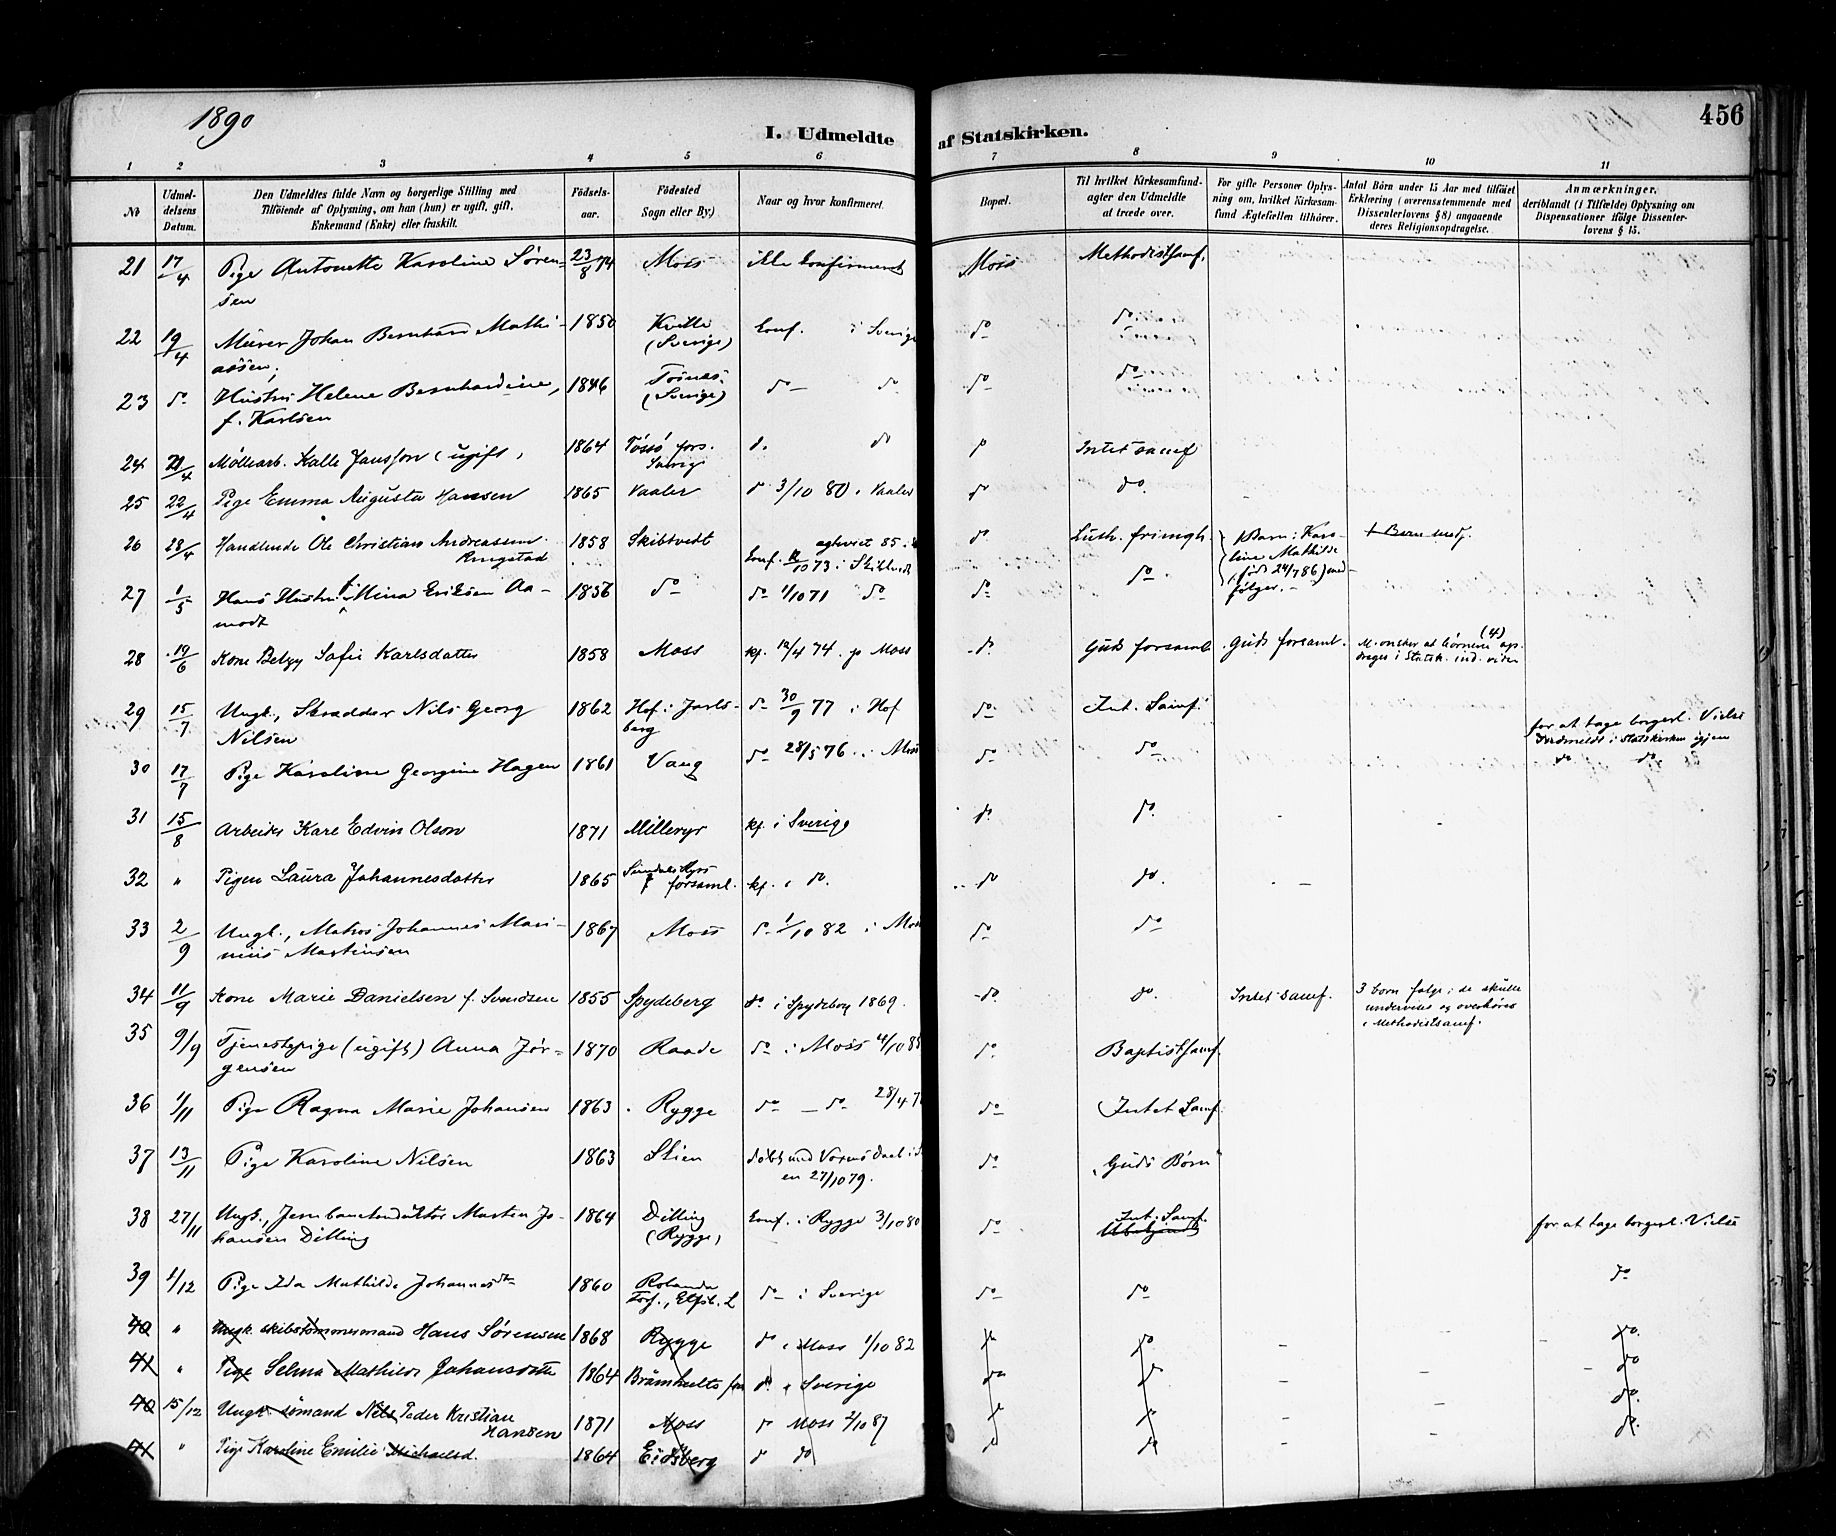 1890
456
I. Udmeldte af Statskirken.
1 2 3 4 5 6 7 8 9 10 11
No
Udmel-
delsens
Datum.
Den Udmeldtes fulde Navn og borgerlige Stilling med
Tilföiende af Oplysning, om han (hun) er ugift, gift,
Enkemand (Enke) eller fraskilt.
Födsels-
aar.
Födested
Sogn eller By.)
Naar og hvor konfirmeret.
Bopæl.
Til hvilket Kirkesamfund-
agter den Udmeldte
at træde over.
For gifte Personer Oplys-
ning om, hvilket Kirkesam-
fund Ægtefællen tilhörer.
Antal Börn under 15 Aar med tilföiet
Erklæring (overensstemmende med
Dissenterlovens § 8) angaaende
deres Religionsopdragelse.
Anmærkninger,
deriblandt (i Tilfælde) Oplysning om
Dispensationer ifölge Dissenter-
lovens § 15.
21 17/4 Pige Antonette Karoline Søren- 23/8 74 Moss ikke konfirmeret Moss Methodistsamf.
sen
22 19/4 Murer Johan Bernhard Mathi- 1850 Kville Conf. i Sverige do do
assen, (Sverige)
23 do Hustru Helene Bernhardine, 1846 Tosnes. do do do do
f. Karlsen (Sverige)
24 21/4 Møllearb. Kalle Jansson (ugift, 1864 Tössö fors. d. do do Intet samf
Sverig
25 22/4 Pige Emma Augusta Hansen 1865 Vaaler do 3/10 80 i Vaaler do do.
26 28/4 Handlende Ole Christian Andreassen 1858 Skibtvedt do. Luth. frimgh.
Ringstad Conf. 12/10 73 i
1 Barn: Karo-
line Mathilde
(född 24/7 86) med-
følger.
27 1/5 Hans Hustru Mina Eriksen Aa- 1856 do do 1/10 71 do do do.
modt
28 19/6 Kone Betzy Sofie Karlsdatter 1858 Moss kf. 12/4 74. i Moss do. Guds forsaml. Guds forsaml. M. ønsker at børnene (4) op-
drages i Statsk. ind. vider
29 15/7 Ungk., Skrædder Nils Georg 1862 Hof i Jarls- do 30/9 77 i Hof do. Int. Samf. for at tage borgerl. Vielse
Nilsen berg Indmeldt i Statskirken igjen
30 17/7 Pige Karoline Georgine Hagen 1861 Vang do 28/5 76. i Moss do do do do.
31 15/8 Arbeider Karl Edvin Olson 1871 Milleryr kf. i Sverige do. do.
32 " Pigen Laura Johannesdatter 1865 forsaml. kf. i do. do do.
33 2/9 Ungk., Matros Johannes Mari- 1867 Moss do 1/10 82 i Moss do do
nius Martinsen
34 11/9 Kone Marie Danielsen f. Svendsen 1855 Spydeberg do. i Spydeberg 1869. do. do. Intet samf. 3 born følge; de skulle
undervises og overhøres
i Methodistsamf.
35 9/9 Tjenestepige (ugift) Anna Jør- 1870 Raade do i Moss 4/10 85 do Baptistsamf.
gensen
36 1/11 Pige Ragna Marie Johansen 1863. Rygge do — do 28/4 7 do Intet Samf.
37 13/11 Pige Karoline Nilsen 1863 Skien do „Guds Børn"
en 27/10 79.
38 27/11 Ungk., Jernbanekonduktør Martin Jo- 1864 Dilling Conf. i Rygge 3/10 80 do Int. Samf. for at tage borgerl. Vielse
hansen Dilling (Rygge)
39 1/12 Pige Ida Mathilde Johannesdtr 1860 do i Sverige do do do
40 " Ungk. skibstømmermand Hans Sørensen 1868 Rygge do i Moss 1/10 82 do do do.
41 " Pige Selma Mathilde Johansdatter 1864 Brämhults do. i Sverige do do do
40 15/12 Ungk. sömand Nils Peder Kristian 1871 Moss do Moss 2/10 87 do do do.
Hansen
41 " Pige Karoline Emilie Michaelsd. 1864 Eidsberg do do do do do.